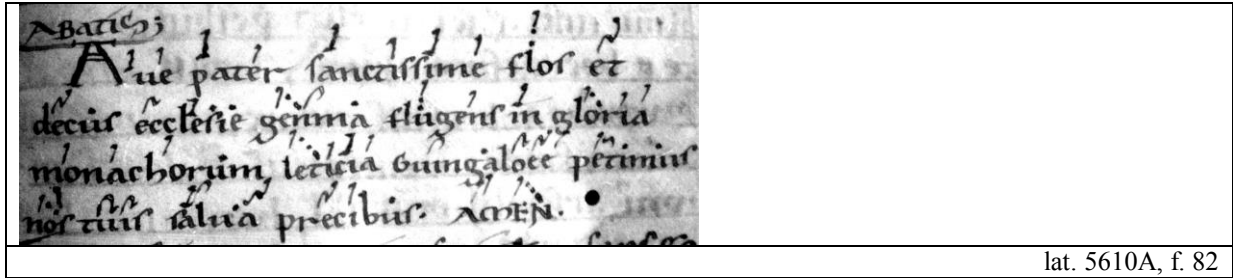 ABATIS;
Aue pater sanctissime flos et
decus ecclesie gemma fulgens in gloria
monachorum leticia Guingaloee petimus
nos tuis salua precibus. AMEN.
lat. 5610A, f. 82